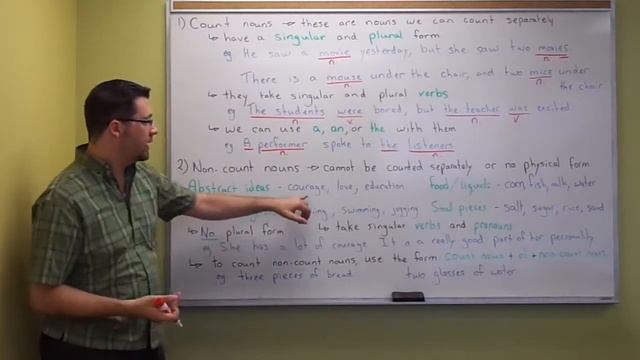 1) Count nouns → these are nouns we can count separately
↳ have a singular and plural form
eg He saw a movie yesterday, but she saw two movies
n n
There is a mouse under the chair, and two mice under
n n the chair
↳ they take singular and plural verbs
eg The students were bored, but the teacher was excited.
n v n v
↳ we can use a, an, or the with them
eg A performer spoke to the listeners.
n n
2) Non-count nouns → cannot be counted separately or no physical form
Abstract ideas - courage, love, education Food/liquids - corn, fish, milk, water
swimming, jogging Small pieces - salt, sugar, rice, sand
↳ No plural form ↳ take singular verbs and pronouns
eg She has a lot of courage. It is a really good part of her personality
↳ to count non-count nouns, use the form count noun + of + non-count noun
eg three pieces of bread two glasses of water